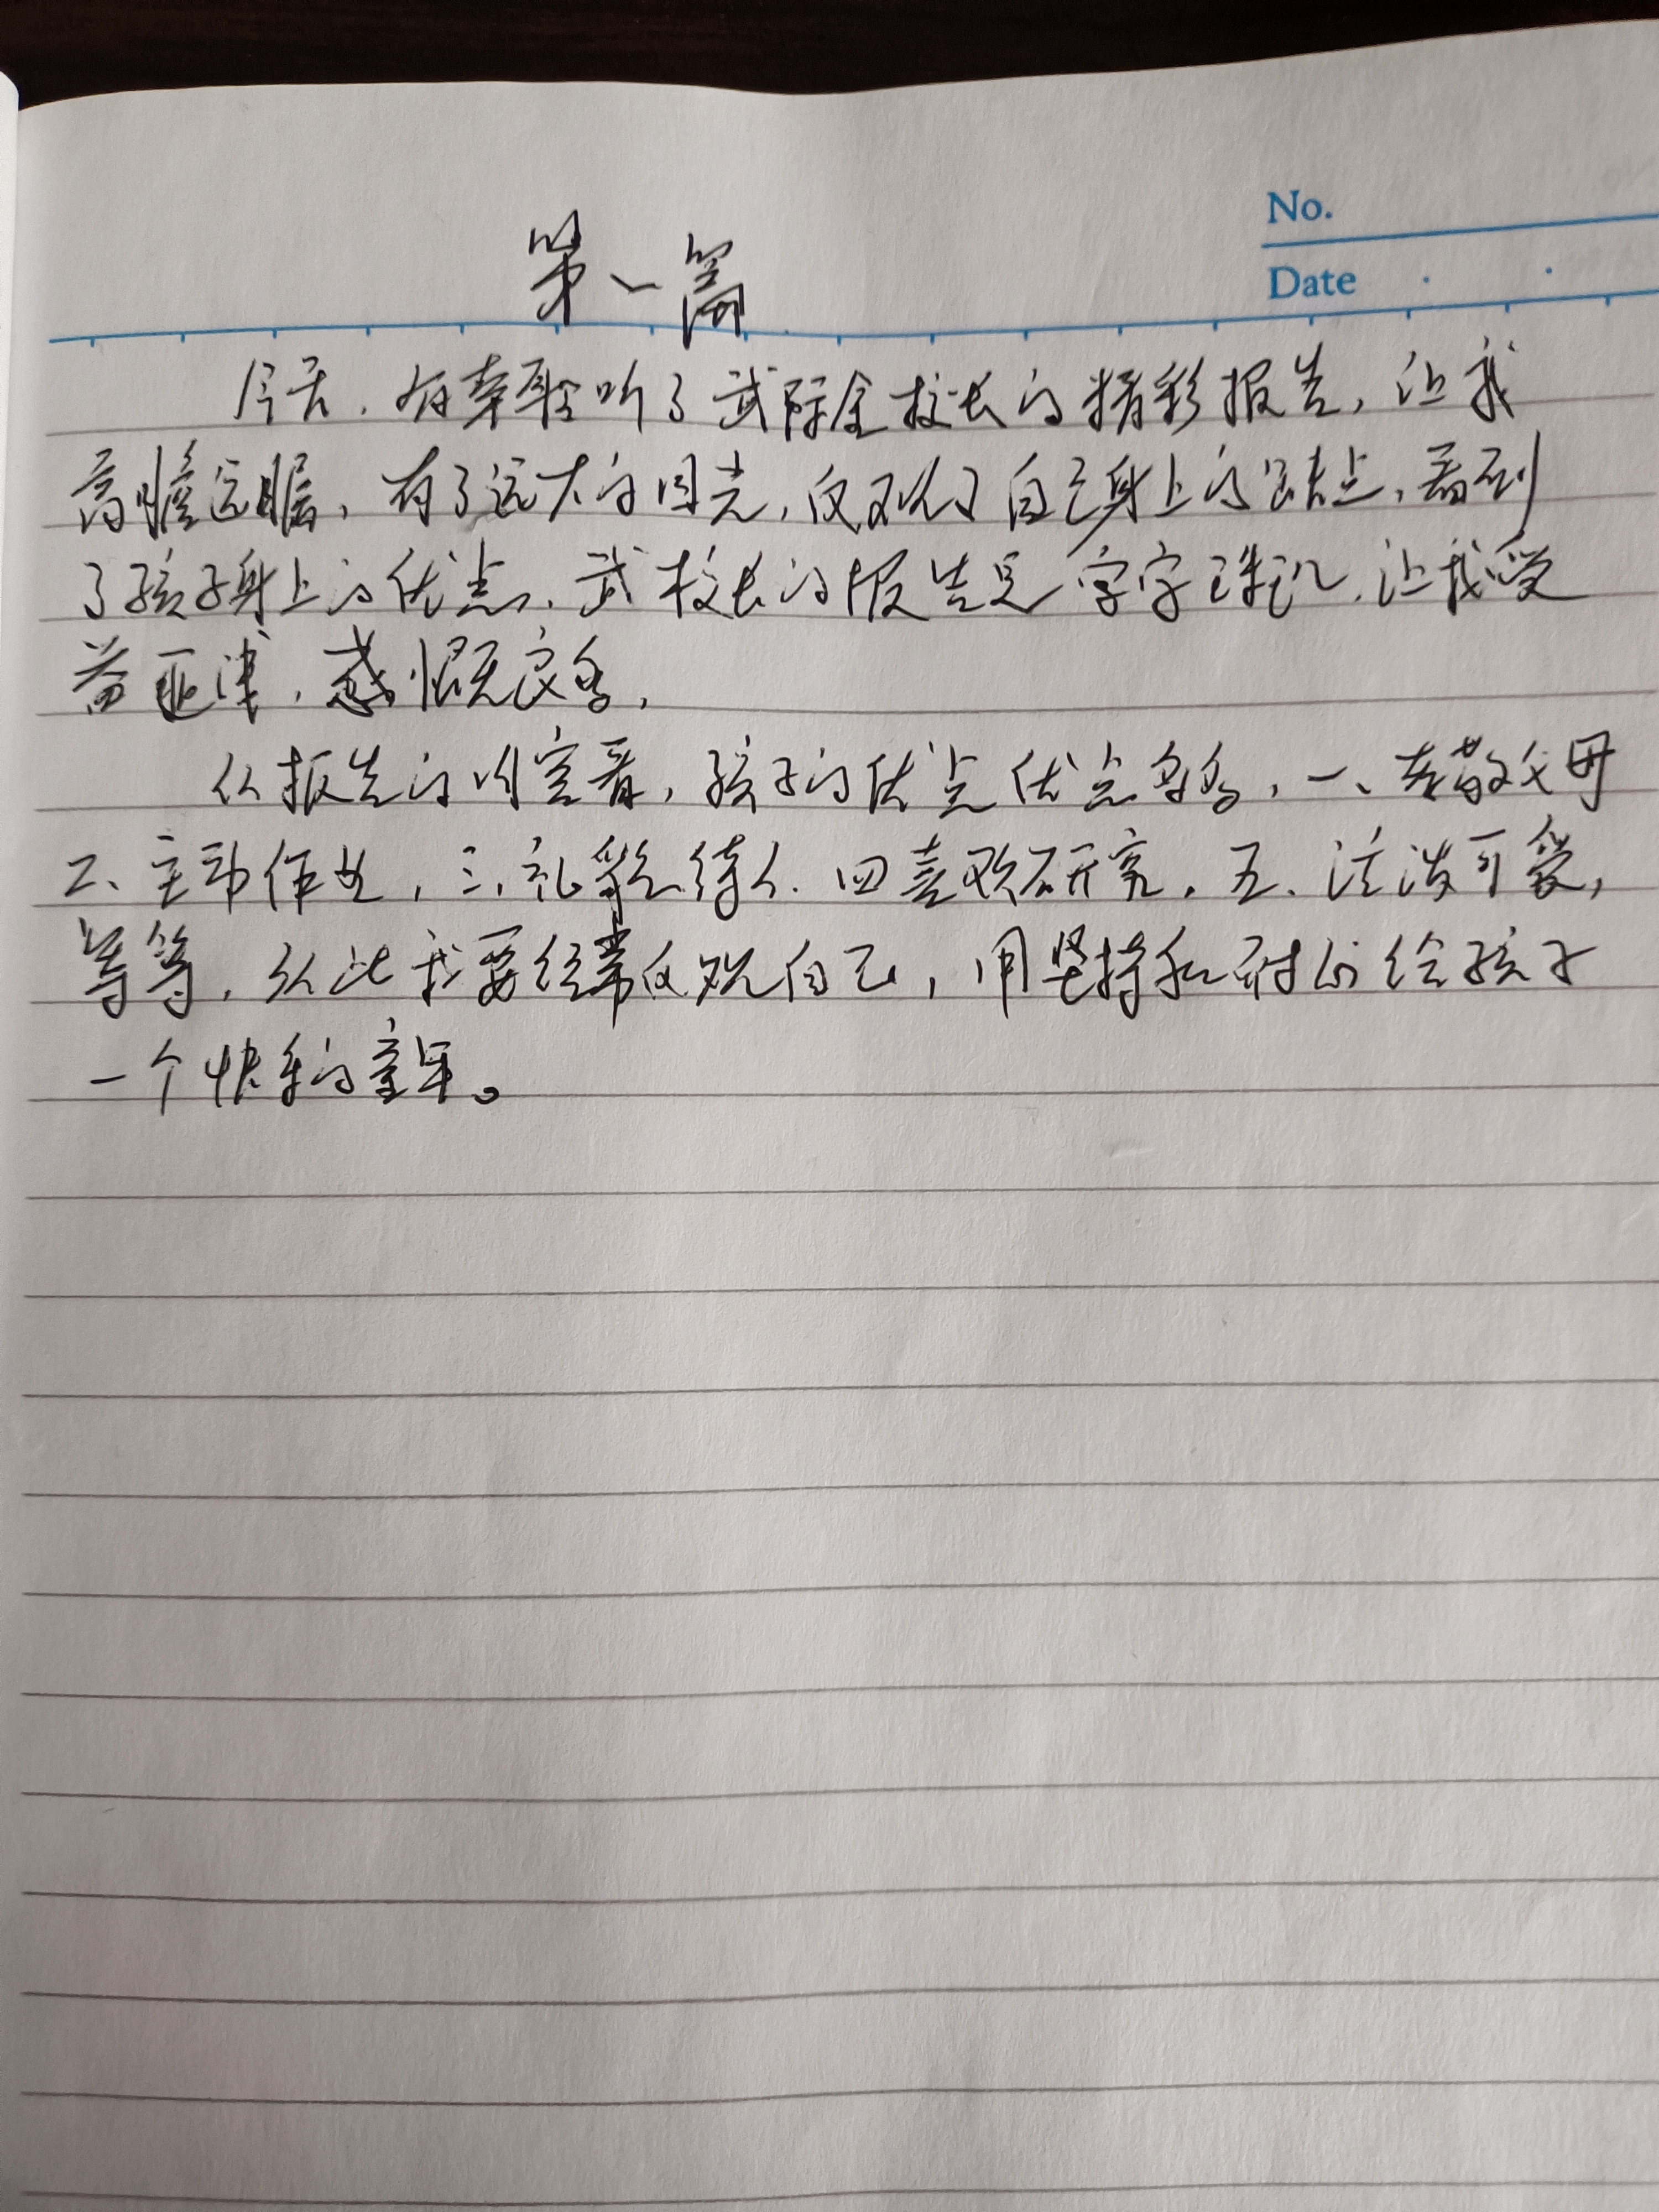 No.
Date
第一篇
今天,有幸聆听了武际金校长的精彩报告,让我
高瞻远瞩,有了远大的目光,反观了自己身上的缺点,看到
了孩子身上的优点,武校长的报告是字字珠玑,让我受
益匪浅,感慨良多,
从报告的内容看,孩子的优点优点多多,一、孝敬父母
二、主动作业,三、礼貌待人.四喜欢研究,五.活泼可爱,
等等,从此我要经常反观自己,用坚持和耐心给孩子
一个快乐的童年。